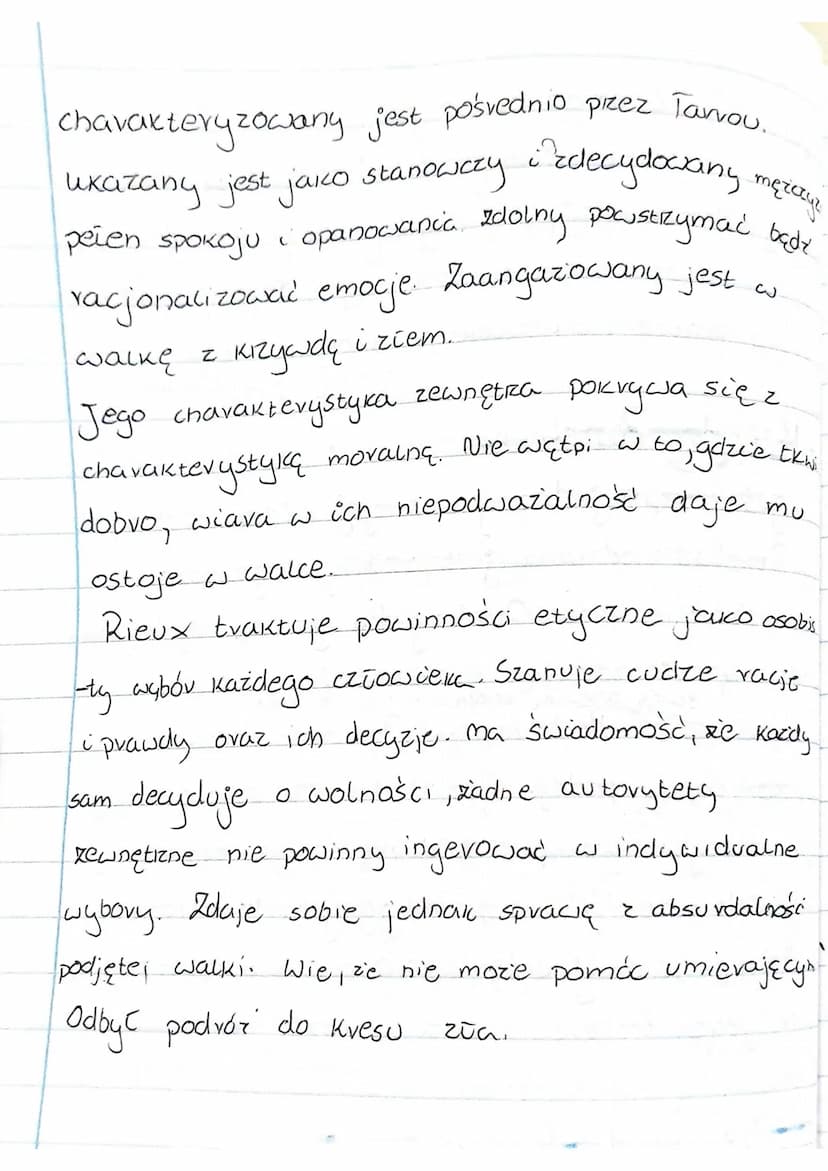 charakteryzowany jest pośrednio przez Tarrou.
ukazany jest jako stanowczy i zdecydowany mężczyz
pełen spokoju i opanowania zdolny powstrzymać bądź
racjonalizować emocje. Zaangażowany jest w
walkę z krzywdą i złem.
Jego charakterystyka zewnętrza pokrywa się z
charakterystyką moralną. Nie wątpi w to, gdzie tkwi
dobro, wiara w ich niepodważalność daje mu
ostoje w walce.
Rieux traktuje powinności etyczne jako osobis
-ty wybór każdego człowieka. Szanuje cudze racje
i prawdy oraz ich decyzje. ma świadomość, że każdy
sam decyduje o wolności, żadne autorytety
zewnętrzne nie powinny ingerować w indywidualne
wybory. Zdaje sobie jednak sprawę z absurdalności
podjętej walki. Wie, że nie może pomóc umierającym
Odbyć podróż do kresu zła.